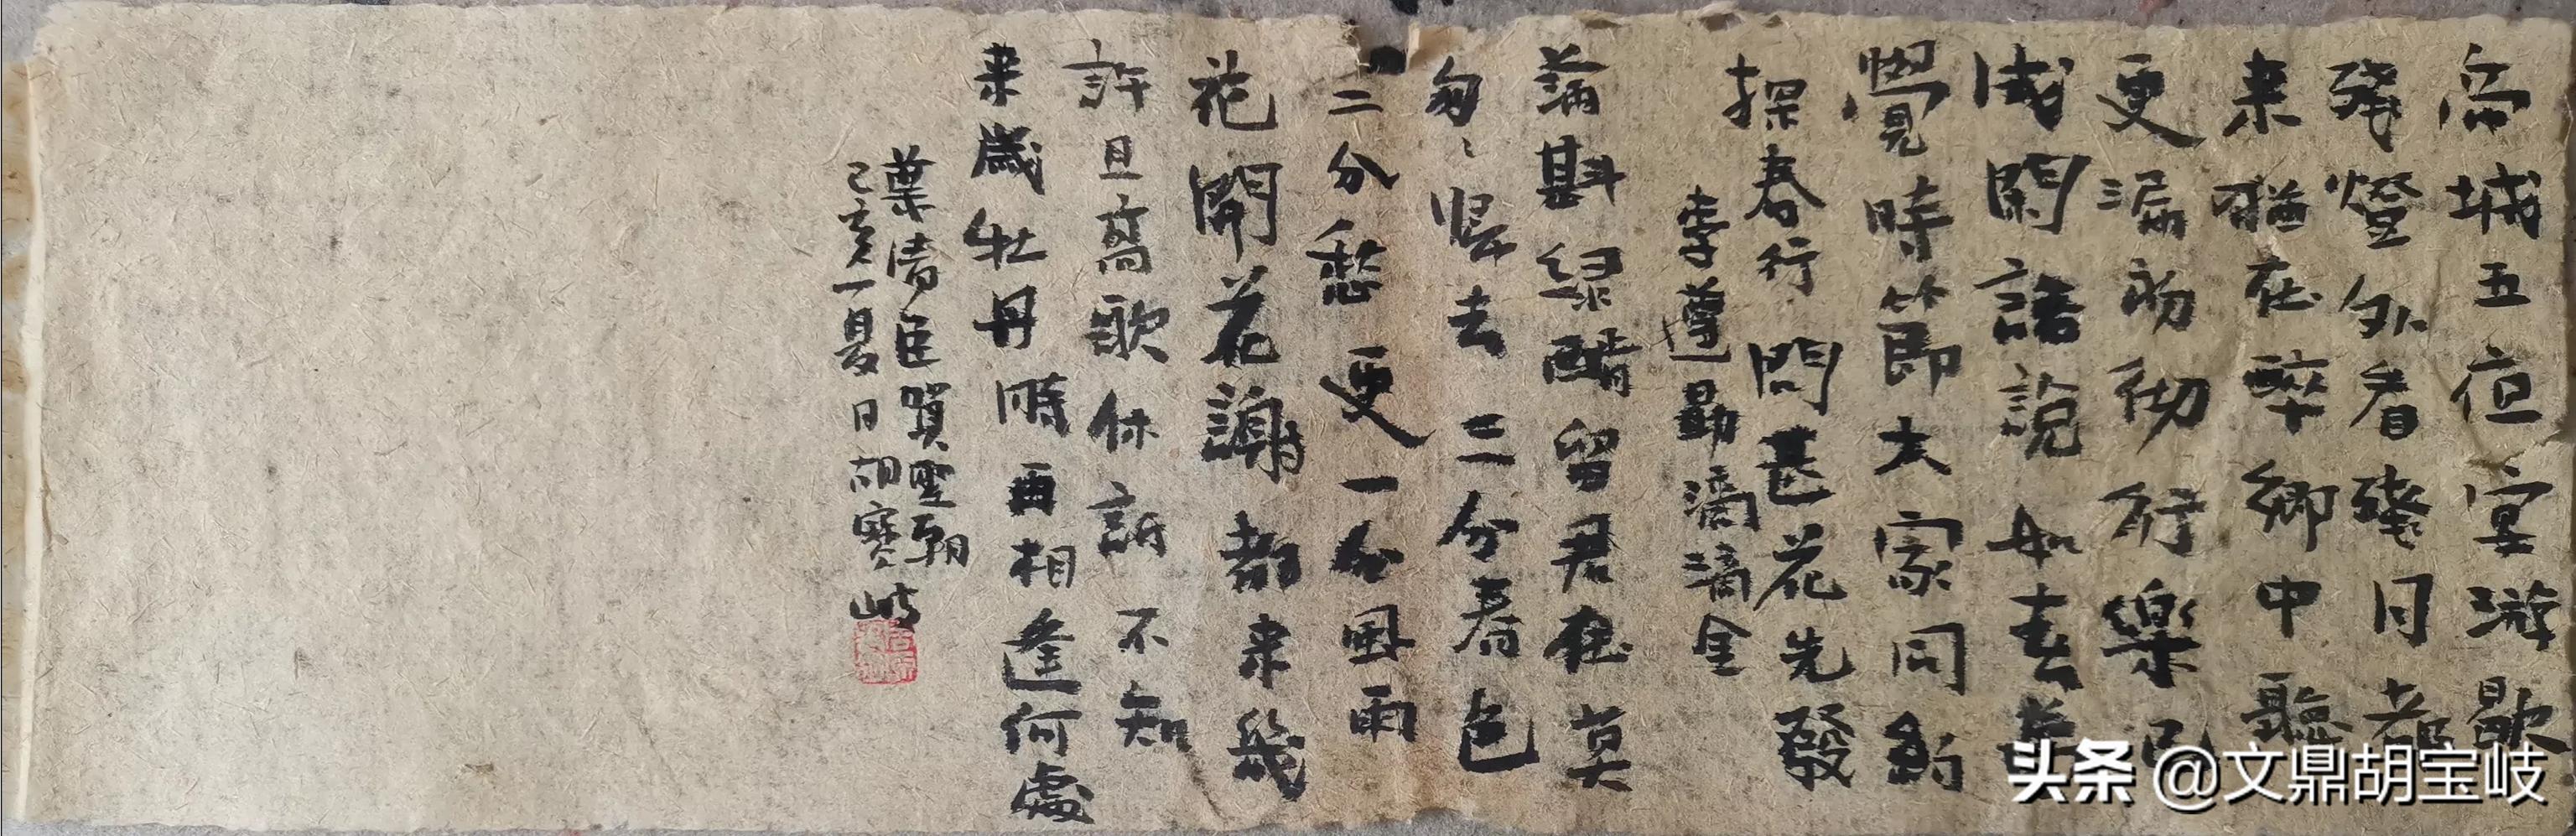 帝城五夜宴游歇
殘燈外看殘月都
来猶在醉鄉中聽
更漏初徹行樂已
成閑語說如春夢
覺時節大家同約
探春行問甚花先發
李遵勗滴滴金
滿斟綠醑留君住莫
匆〻歸去三分春色
二分愁更一分風雨
花開花謝都来幾
許且高歌休訴不知
来歲牡丹時再相逢何處
葉清臣賀聖朝
己亥一夏日胡寶岐
头条 @文鼎胡宝岐